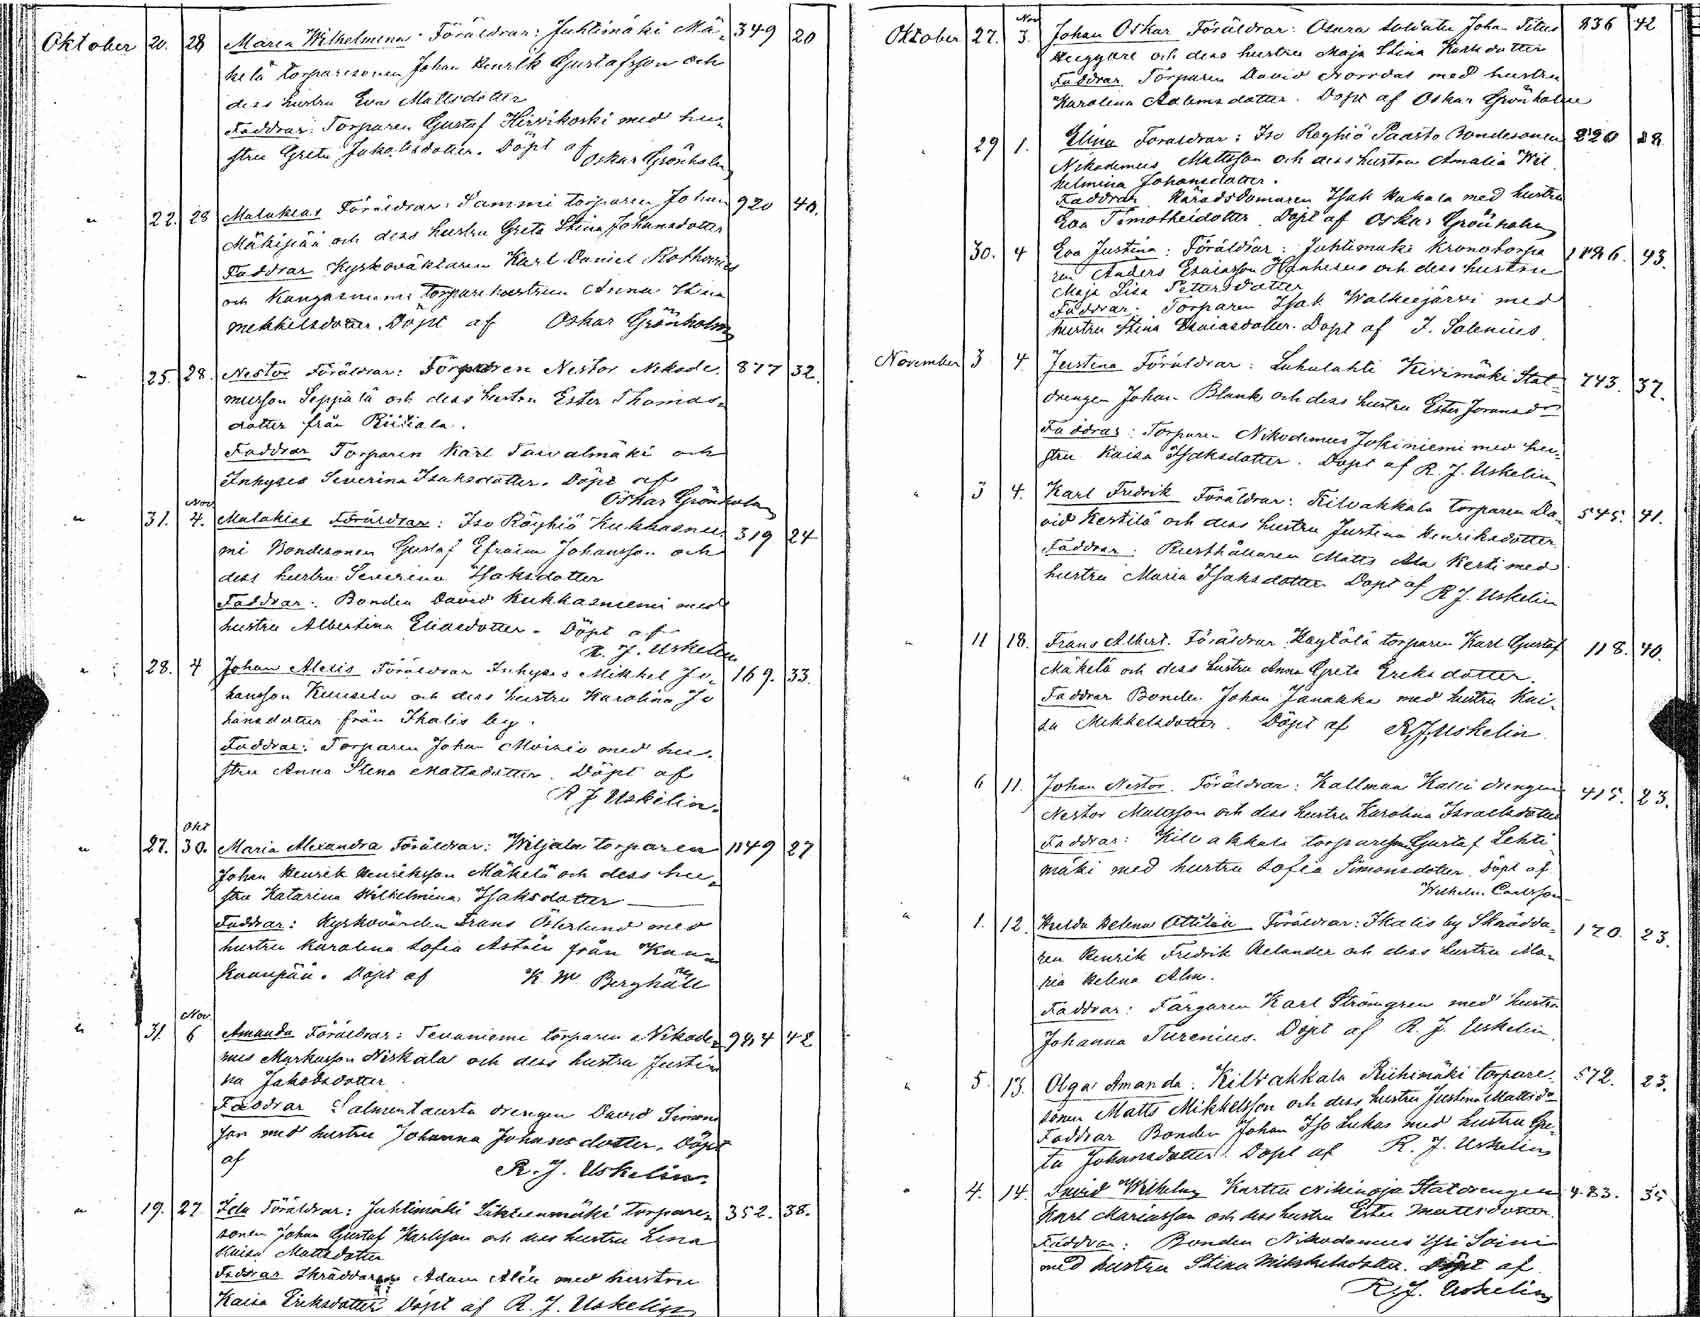 Oktober 20. 28 Maria Wilhelmina. Föräldrar: Juhtimäki Mä- 349 20
kelä torparesonen Johan Henrik Gustafsson och
dess hustru Eva Mattsdotter
Faddrar: Torparen Gustaf Hirvikoski med hu-
stru Greta Jakobsdotter. Döpt af
Oskar Grönholm
" 22. 28 Malakias Föräldrar: Sammi torparen Johan 920 40.
Mäkipää och dess hustru Greta Stina Johansdotter
Faddrar Kyrkovaktaren Karl Daniel
och Kangasniemi torparehustrun Anna Stina
Mikkelsdotter. Döpt af Oskar Grönholm
" 25. 28. Nestor Föräldrar: Torparen Nestor Nikode- 877 32.
musson Seppälä och dess hustru Ester Thomas-
dotter från Riitiala.
Faddrar Torparen Karl Taivalmäki och
Inhyses Severina Isaksdotter. Döpt af
Oskar Grönholm
Nov
" 31. 4. Malakias Föräldrar: Iso Röyhiö Kukkasnie- 319 24
mi Bondesonen Gustaf Efraim Johansson och
dess hustru Severina Isaksdotter
Faddrar: Bonden David Kukkasniemi med
hustru Albertina Eliasdotter. Döpt af
R. J. Uskelin
" 28. 4 Johan Aleksis Föräldrar Inhyses Mikkel Jo- 169. 33.
hansson Kuusela och dess hustru Karolina Jo
hansdotter från Ikalis by.
Faddrar: Torparen Johan Moisio med hu-
stru Anna Stina Mattsdotter. Döpt af
R J Uskelin.
Okt
" 27. 30. Maria Alexandra Föräldrar: Wiljala torparen 1149 27
Johan Henrik Henriksson Mäkelä och dess hu-
stru Katarina Wilhelmina Isaksdotter
Faddrar: Kyrkovärden Frans Österlund med
hustru Karolina Sofia Astrén från Kan-
kaanpää. Döpt af K. W. Berghäll
Nov
" 31. 6 Amanda Föräldrar: Tevaniemi torparen Nikode- 984 42
mus Myrkusson Niskala och dess hustru Justi
na Jakobsdotter
Faddrar Salmentausta drengen David Simons
son med hustru Johanna Johansdotter. Döpt
af
R. J. Uskelin.
" 19. 27. Ida Föräldrar: Juhtimäki torpare- 352. 38.
sonen Johan Gustaf Karlsson och dess hustru Lena
Kaisa Mattsdotter
Faddrar Skräddaren Adam Alén med hustru
Kaisa Eriksdotter Döpt af R. J. Uskelin
Nov
Oktober 27. 3. Johan Oskar Föräldrar: Osara soldaten Johan Titus 836 42
Huggare och dess hustru Maja Stina Karlsdotter
Faddrar Torparen David Norrdal med hustru
Karolina Adamsdotter. Döpt af Oskar Grönholm
" 29 1. Elina Föräldrar: Iso Röyhiö Paarto Bondesonen 220 28
Nikodemus Mattsson och dess hustru Amalia Wil
helmina Johansdotter.
Faddrar Häradsdomaren Isak Kukala med hustru
Eva Timotheidotter. Döpt af Oskar Grönholm
30. 4 Eva Justina: Föräldrar: Juhtimäki kronotorpa 1186. 43.
ren Anders Esaiasson Hanhisuo och dess hustru
Maja Lisa Pettersdotter
Faddrar: Torparen Isak Walkeejärvi med
hustru Stina Esaiasdotter. Döpt af J. Salenius.
November 3 4. Justina Föräldrar: Luhalahti Kivimäki Stat- 743. 37.
drengen Johan Blank och dess hustru Ester Joransdr
Faddrar: Torparen Nikodemus Jokiniemi med hu-
stru Kaisa Isaksdotter. Döpt af R. J. Uskelin
" 3 4. Karl Fredrik Föräldrar: Kilvakkala torparen Da- 545. 41.
vid Kestilä och dess hustru Justina Henriksdotter
Faddrar: Rusthållaren Matts Ala Kerti med
hustru Maria Isaksdotter Döpt af
R J. Uskelin
" 11 18. Frans Albert. Föräldrar Haytölä torparen Karl Gustaf 118. 40.
Mäkelä och dess hustru Anna Greta Eriksdotter.
Faddrar Bonden Johan Janakka med hustru Kai-
sa Mikkelsdotter. Döpt af R J Uskelin.
" 6 11. Johan Nestor Föräldrar: Kallmaa Kalli drengen 415. 23.
Nestor Mattsson och dess hustru Karolina Israelsdotter
Faddrar: Kilvakkala torparen Gustaf Lehti
mäki med hustru Sofia Simonsdotter. Döpt af
Wilhelm Carlsson
" 1. 12. Hulda Helena Ottilia Föräldrar: Ikalis by Skrädda- 170. 23.
ren Henrik Fredrik Helander och dess hustru Ma-
ria Helena Alm.
Faddrar: Färgaren Karl Strömgren med hustru
Johanna Turenius. Döpt af R. J. Uskelin
" 5. 13. Olga Amanda. Kilvakkala Riihimäki torpare- 572. 23.
sonen Matts Mikkelsson och dess hustru Justina Mattsdr
Faddrar Bonden Johan Iso Lukas med hustru Gre-
ta Johansdotter. Döpt af R. J. Uskelin
" 4. 14. David Wilhelm Karttu Nikinoja Statdrengen 483. 35
Karl Mariasson och dess hustru Ester Mattsdotter.
Faddrar: Bonden Nikodemus Yri Soini
med hustru Stina Mikkelsdotter. Döpt af
R. J. Uskelin